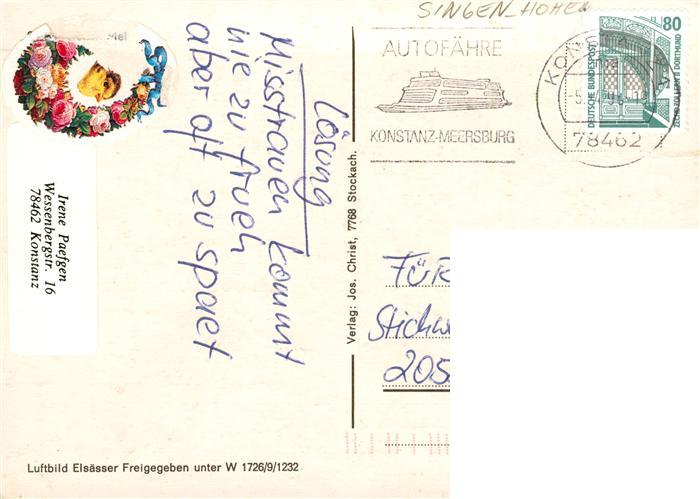 SINGEN-HOHEN
AUTOFÄHRE
KONSTANZ-MEERSBURG
78462
80
DEUTSCHE BUNDESPOST
ZECHE ZOLLERN II DORTMUND
Lösung
Misstrauen kommt
nie zu frueh
aber oft zu spaet
Irene Paefgen
Wessenbergstr. 16
78462 Konstanz
Verlag: Jos. Christ, 7768 Stockach.
FÜR
Stichw
205
Luftbild Elsässer Freigegeben unter W 1726/9/1232